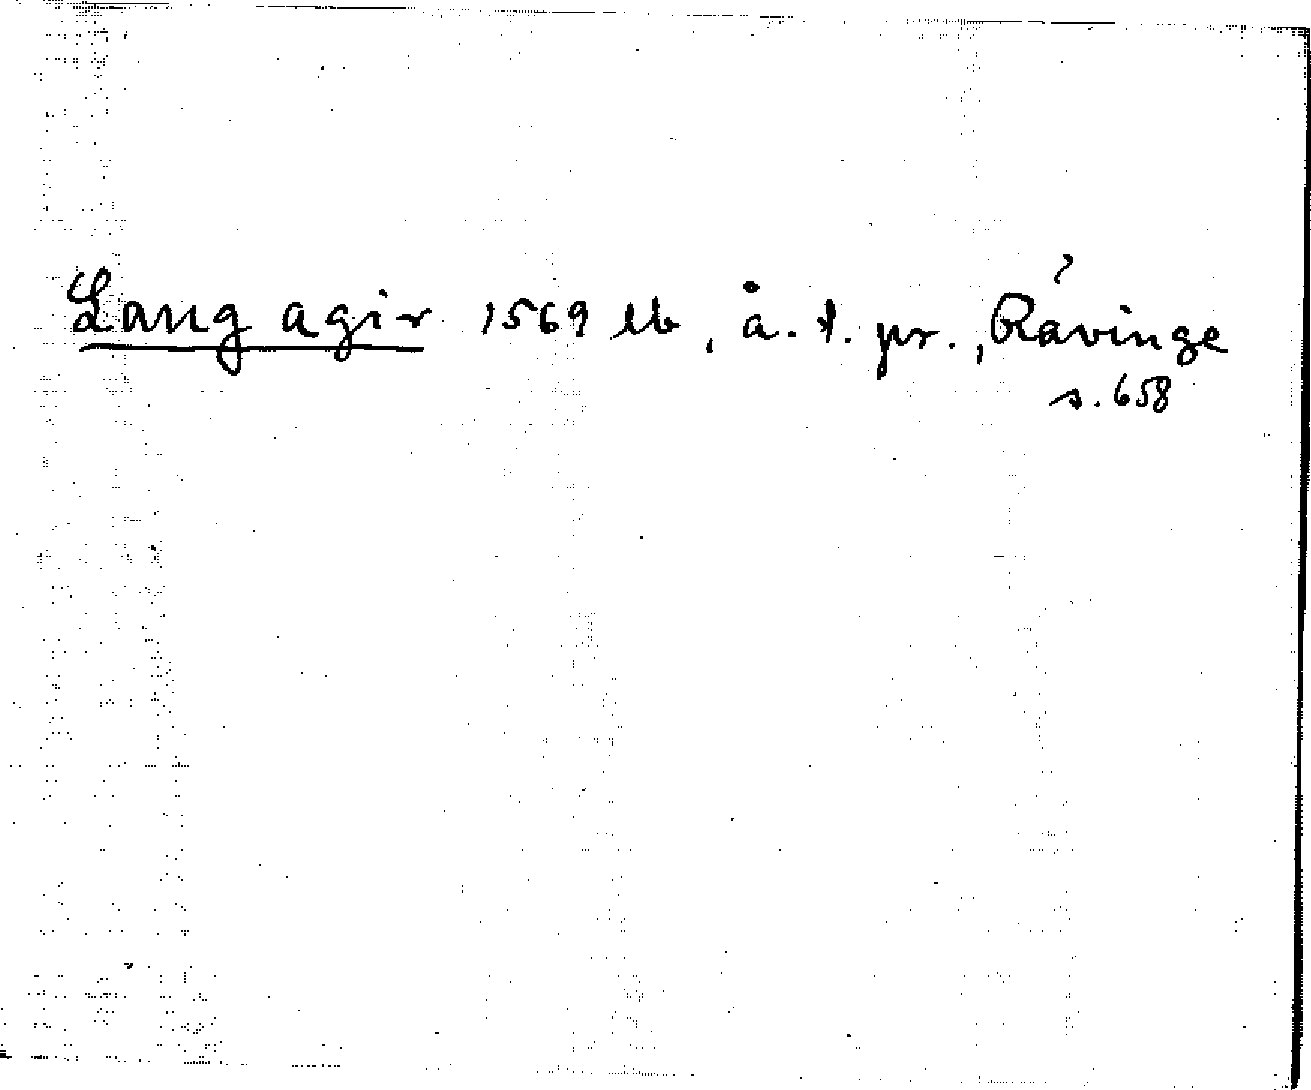 Lang agir 1569 lb, å. t. pr., Råvinge
s. 658